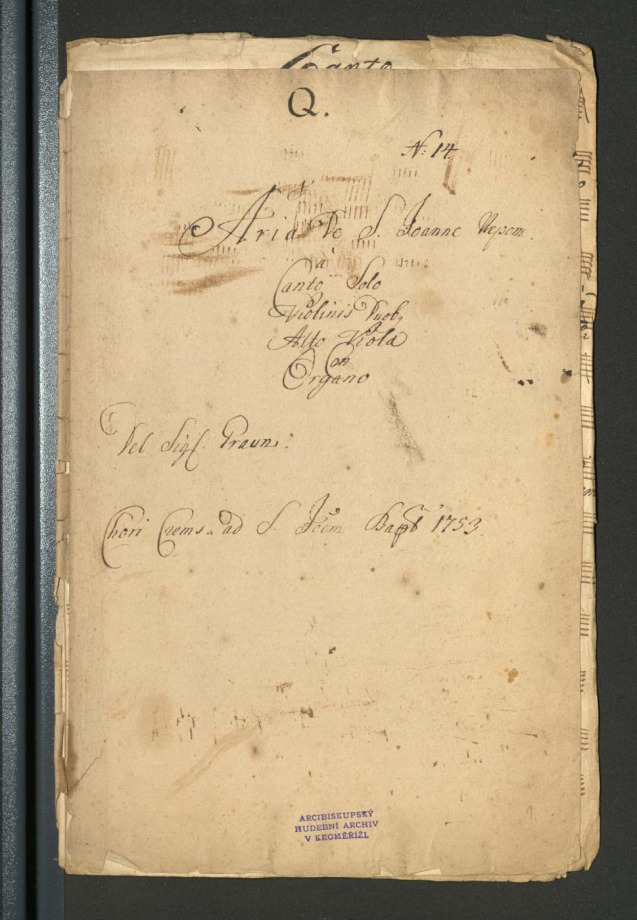 Canto
Q.
N: 14
Aria De S. Joanne Nepom.
à
Canto Solo
Violinis Duob9
Alto Viola
Con
Organo
Del Sig. Graun:
Chori Crems: ad S. Joem Bapt 1753
ARCIBISKUPSKÝ
HUDEBNÍ ARCHIV
V KROMĚŘÍŽI.
1